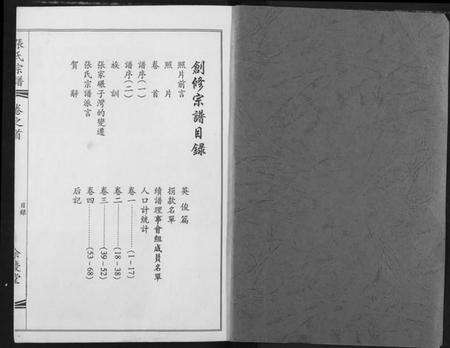 創修宗譜目録
照片前言
照片
卷首
譜序(一)
譜序(二)
族訓
張家碾子灣的變遷
張氏宗譜派言
賀辭
英俊篇
捐款名單
續譜理事會組成員名單
人口計統計
卷一………(1-17)
卷二………(18-38)
卷三………(39-52)
卷四………(53-68)
后記
張氏宗譜
卷之首
目錄
余慶堂